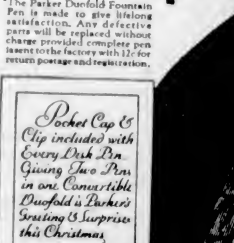 The Parker Duofold Fountain
Pen is made to give lifelong
satisfaction. Any defective
parts will be replaced without
charge provided complete pen
is sent to the factory with 12c for
return postage and registration.
Pocket Cap &
Clip included with
Every Desk Pen
Giving Two Pens
in one Convertible
Duofold is Parker's
Greeting & Surprise
this Christmas